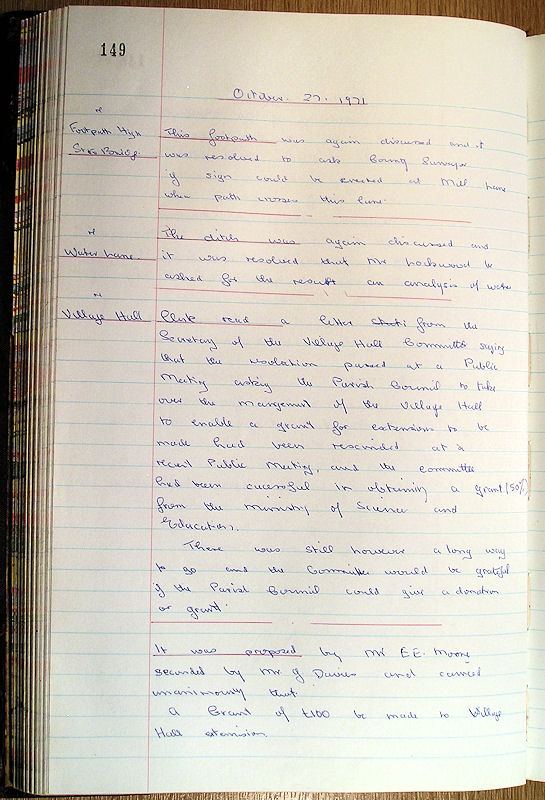 149
October. 27. 1971
Footpath High
This footpath was again discussed and it
was resolved to ask County Surveyor
if sign could be erected at Mill Lane
when path crosses this lane.
Water Lane
The ditch was again discussed and
it was resolved that Mr Lockwood be
asked for the result an analysis of water
Village Hall
Clerk read a letter from the
Secretary of the Village Hall Committee saying
that the resolution passed at a Public
Meeting asking the Parish Council to take
over the mangement of the Village Hall
to enable a grant for extension to be
made had been rescinded at a
recent Public Meeting, and the committee
had been sucessful in obtaining a grant (50%)
from the ministry of Science and
Education.
There was still however a long way
to go and the Committee would be grateful
if the Parish Council could give a donation
or grant.
It was proposed by Mr E.E. Moore
seconded by Mr. G Davies and carried
unanimously that
a Grant of £100 be made to Village
Hall extension.